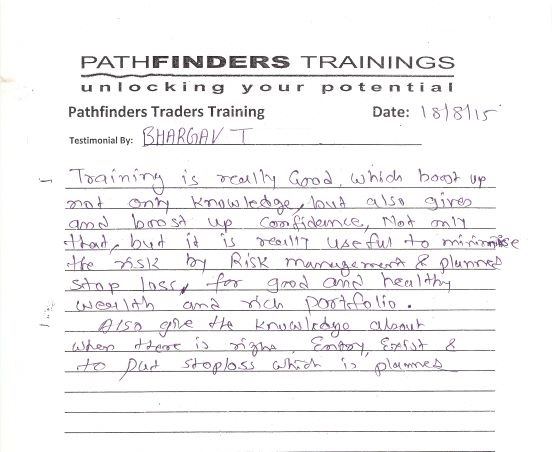 PATHFINDERS TRAININGS
unlocking your potential
Pathfinders Traders Training Date: 18/8/15
Testimonial By: BHARGAV T
Training is really Good, which boost up
not only knowledge, but also gives
and boost up confidence, Not only
that, but it is really useful to minimise
the risk by Risk management & planned
stop loss, for good and healthy
wealth and rich portfolio.
Also give the knowledge about
when there is right, Entry, Exist &
to put stoploss which is planned